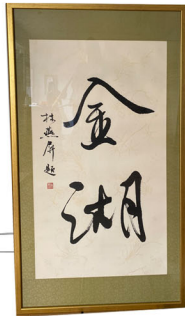 金湖
林燕屏題